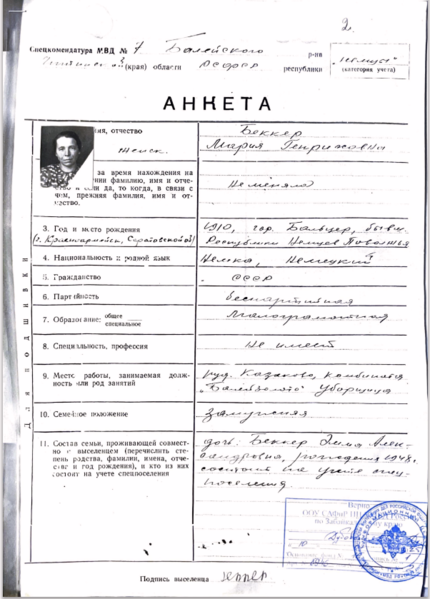 2.
Спецкомендатура МВД № 7 Балейского р-на
Читинской (края) области РСФСР республики
„немцы"
(категория учета)
АНКЕТА
ия, отчество
женск.
Беккер
Мария Генриховна
за время нахождения на
нии фамилию, имя и отче-
и да, то когда, в связи с
чем, прежняя фамилия, имя и от-
чество.
Не меняла
3. Год и место рождения
(г. Красноармейск, Саратовской об)
1910, гор. Бальцер, бывш.
Республики Немцев Поволжья
4. Национальность и родной язык
Немка, немецкий
5. Гражданство
СССР
6. Партийность
беспартийная
7. Образование: общее
специальное
Малограмотная
8. Специальность, профессия
Не имеет
9. Место работы, занимаемая долж-
ность или род занятий
руд. Казаково, комбината
„Балейзолото" Уборщица
10. Семейное положение
замужняя
11. Состав семьи, проживающей совмест-
но с выселенцем (перечислить сте-
пень родства, фамилию, имена, отче-
ство и год рождения), кто из них
состоит на учете спецпоселения
дочь: Беккер Алек-
сандровна, рождения 1948г.
состоит на учете спец-
поселения.
Для подшивки
Подпись выселенца